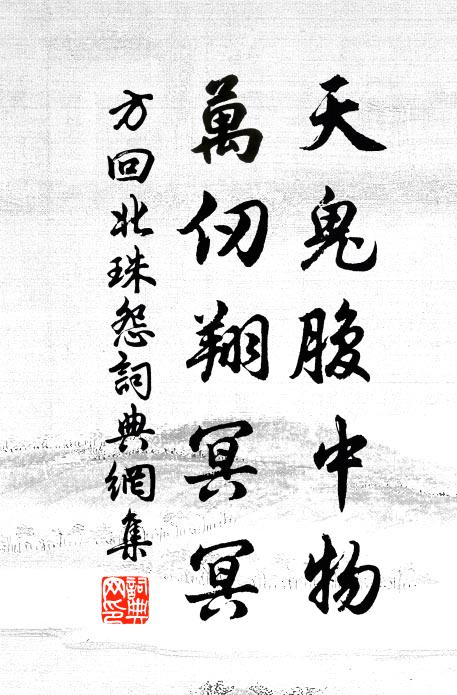 天鬼腹中物
萬仞翔冥冥
方回北珠怨詞典網集
詞典
网印